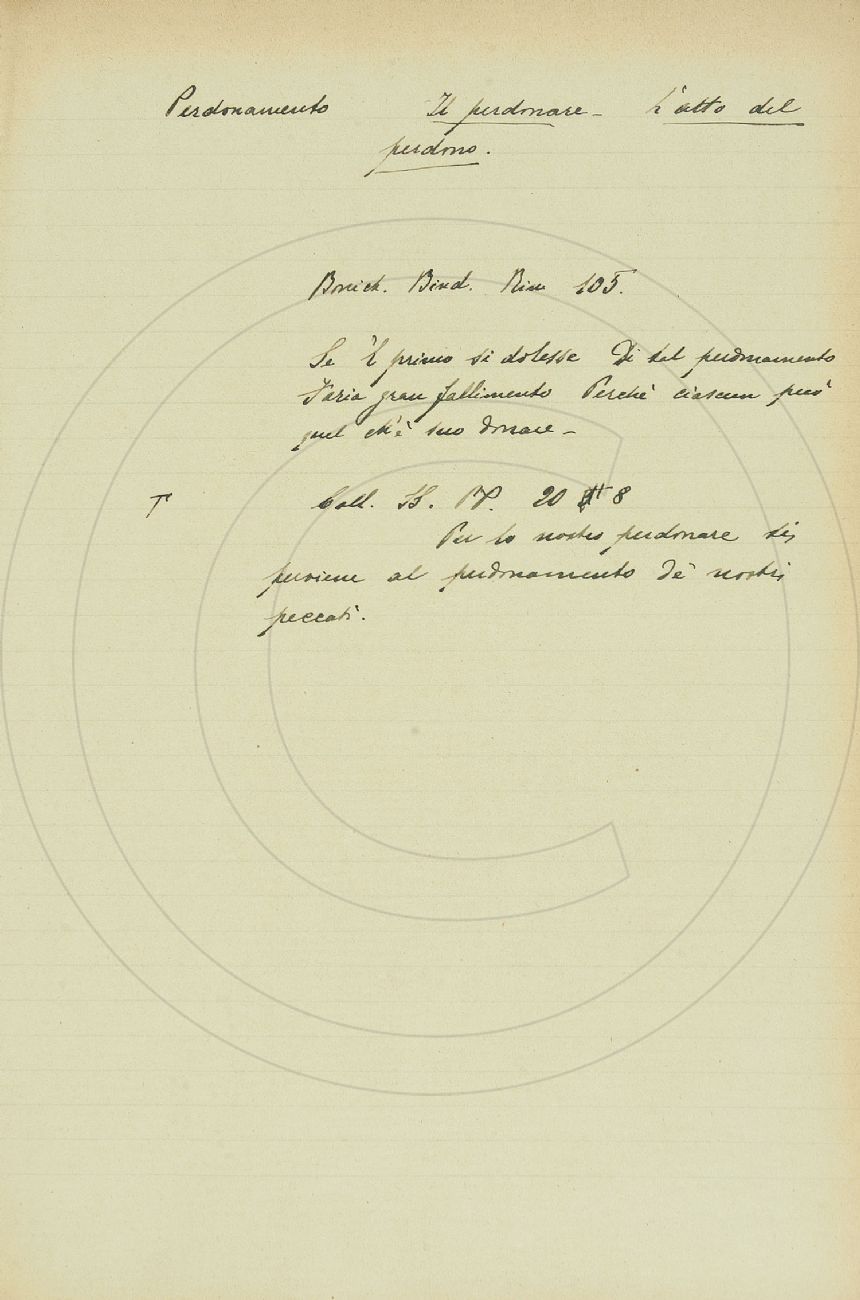 Perdonamento Il perdonare - L'atto del
perdono.
Bonich. Bind. Rim 105.
Se 'l primo si dolesse Di tal perdonamento
Faria gran fallimento Perchè ciascun può
quel ch'è suo donare -
T Coll. SS. PP. 20 8
Per lo nostro perdonare si
perviene al perdonamento de' nostri
peccati.